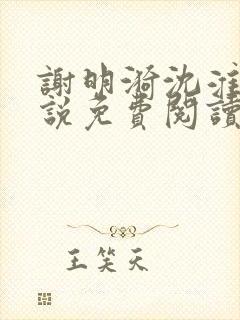 謝明漪沈淮
説免費閱讀
王笑天